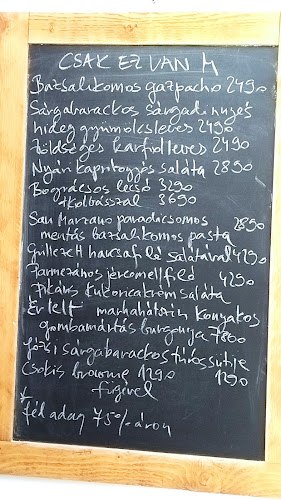 CSAK EZ VAN
Bazsalikomos gazpacho 2490
Sárgabarackos sárgadinnyés
hideg gyümölcsleves 2490
Zöldséges karfiolleves 2490
Nyári kaprítgyós saláta 2890
Bográcsos lecsó 3290
+kolbásszal 3690
San Marzano paradicsomos 2890
mentás bazsalikomos pasta
Grillezett harcsafilé salátával 4290
Parmezános jércemellfilé 4290
Pikáns kukoricakrém saláta
Érlelt marhahátszín konyakos
gombamártás burgonya 7800
Házi sárgabarackos túrós süti
Csokis brownie 1290 1290
fügével
* fél adag 75%-áron